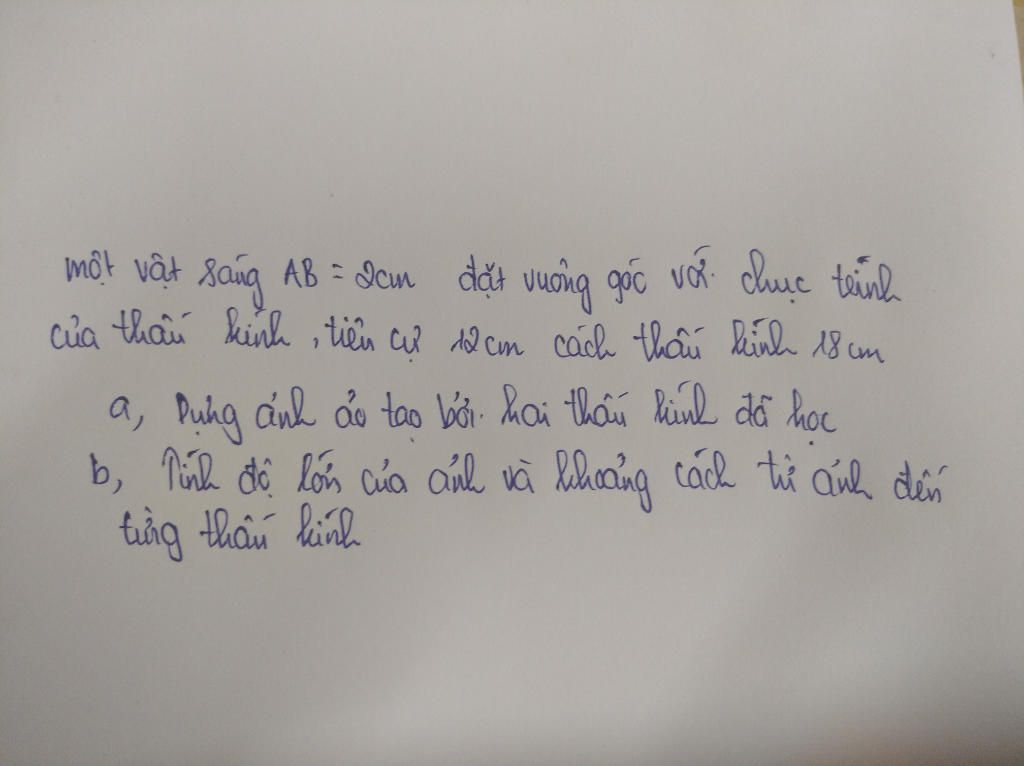 một vật sáng AB = 2cm đặt vuông góc với chục teính
của thấu kính, tiêu cự 12cm cách thấu kính 18cm
a, Dựng ảnh ảo tạo bởi hai thấu kính đã học
b, Tính độ lớn của ảnh và khoảng cách từ ảnh đến
từng thấu kính